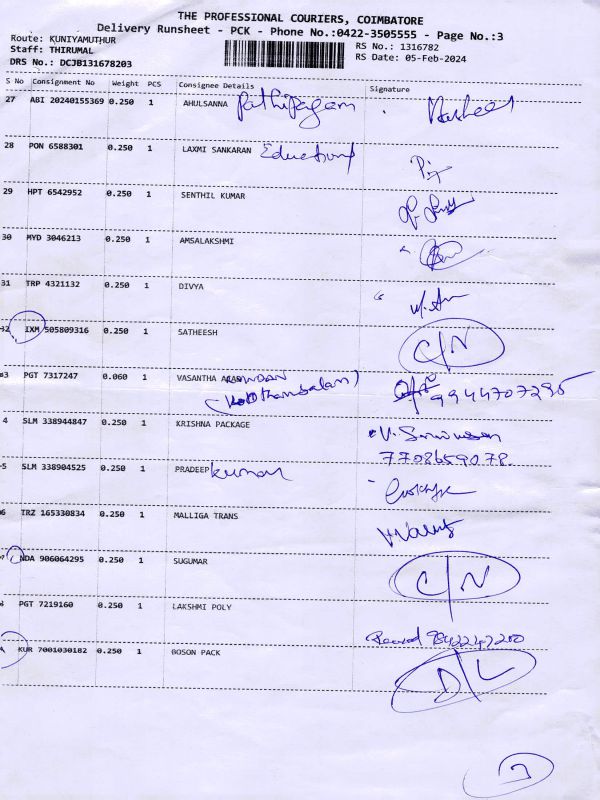 THE PROFESSIONAL COURIERS, COIMBATORE
Delivery Runsheet - PCK - Phone No.:0422-3505555 - Page No.:3
Route: KUNIYAMUTHUR
RS No.: 1316782
Staff: THIRUMAL
RS Date: 05-Feb-2024
DRS No.: DCJB131678203
S No Consignment No Weight PCS Consignee Details Signature
27 ABI 20240155369 0.250 1 AHULSANNA Pathipagam Rasheed
28 PON 6588301 0.250 1 LAXMI SANKARAN Educational
29 HPT 6542952 0.250 1 SENTHIL KUMAR
30 MYD 3046213 0.250 1 AMSALAKSHMI
31 TRP 4321132 0.250 1 DIVYA
32 IXM 505809316 0.250 1 SATHEESH C/N
33 PGT 7317247 0.060 1 VASANTHA
9944707295
4 SLM 338944847 0.250 1 KRISHNA PACKAGE V. Srinivasan
7708659078
5 SLM 338904525 0.250 1 PRADEEP kumar
6 TRZ 165330834 0.250 1 MALLIGA TRANS
7 NDA 906064295 0.250 1 SUGUMAR C/N
8 PGT 7219160 0.250 1 LAKSHMI POLY
9842247200
KUR 7001030182 0.250 1 GOSON PACK D/L